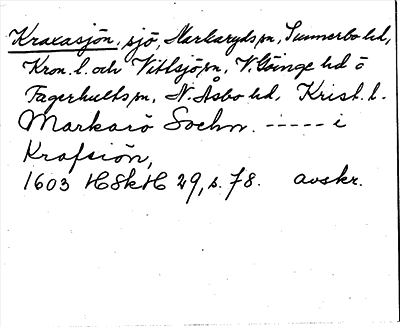 Kraxasjön, sjö, Markaryds sn, Sunnerbo hd,
Kron. l. och Vittsjö sn, V. Göinge hd o
Fagerhults sn, N. Åsbo hd, Krist. l.
Markarö Sochn. ----- i
Krafsiön,
1603 HSkH 29, s. 78. avskr.